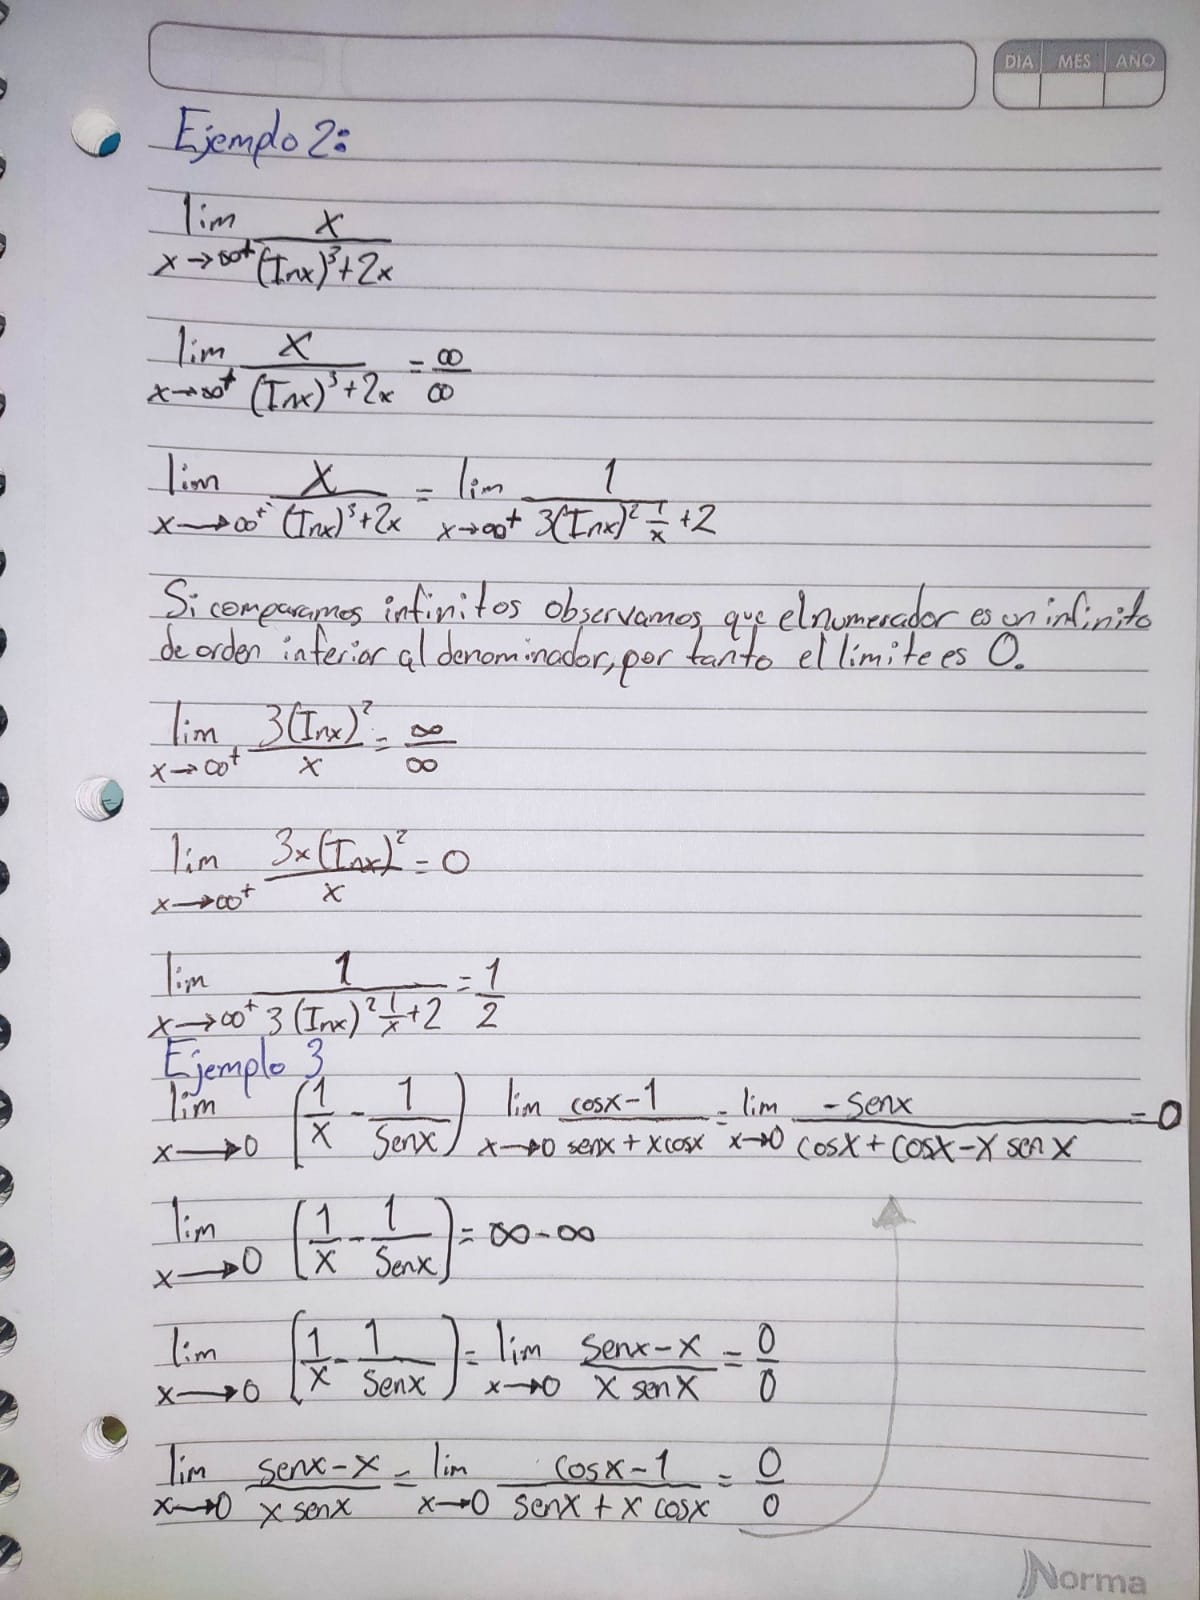 DÍA MES AÑO
Ejemplo 2:
lim x→∞⁺ x/((Inx)³+2x)
lim x→∞⁺ x/((Inx)³+2x) = ∞/∞
lim x→∞⁺ x/((Inx)³+2x) = lim x→∞⁺ 1/(3(Inx)² 1/x +2)
Si comparamos infinitos observamos que el numerador es un infinito
de orden inferior al denominador, por tanto el límite es 0.
lim x→∞⁺ 3(Inx)²/x = ∞/∞
lim x→∞⁺ 3x(Inx)²/x = 0
lim x→∞⁺ 1/(3(Inx)² 1/x +2) = 1/2
Ejemplo 3
lim x→0 (1/x - 1/Senx) lim x→0 (cosx-1)/(senx + xcosx) = lim x→0 -senx/(cosx + cosx - x sen x) = 0
lim x→0 (1/x - 1/Senx) = ∞-∞
lim x→0 (1/x - 1/Senx) = lim x→0 (senx-x)/(x senx) = 0/0
lim x→0 (senx-x)/(x senx) = lim x→0 (cosx-1)/(senx + x cosx) = 0/0
Norma